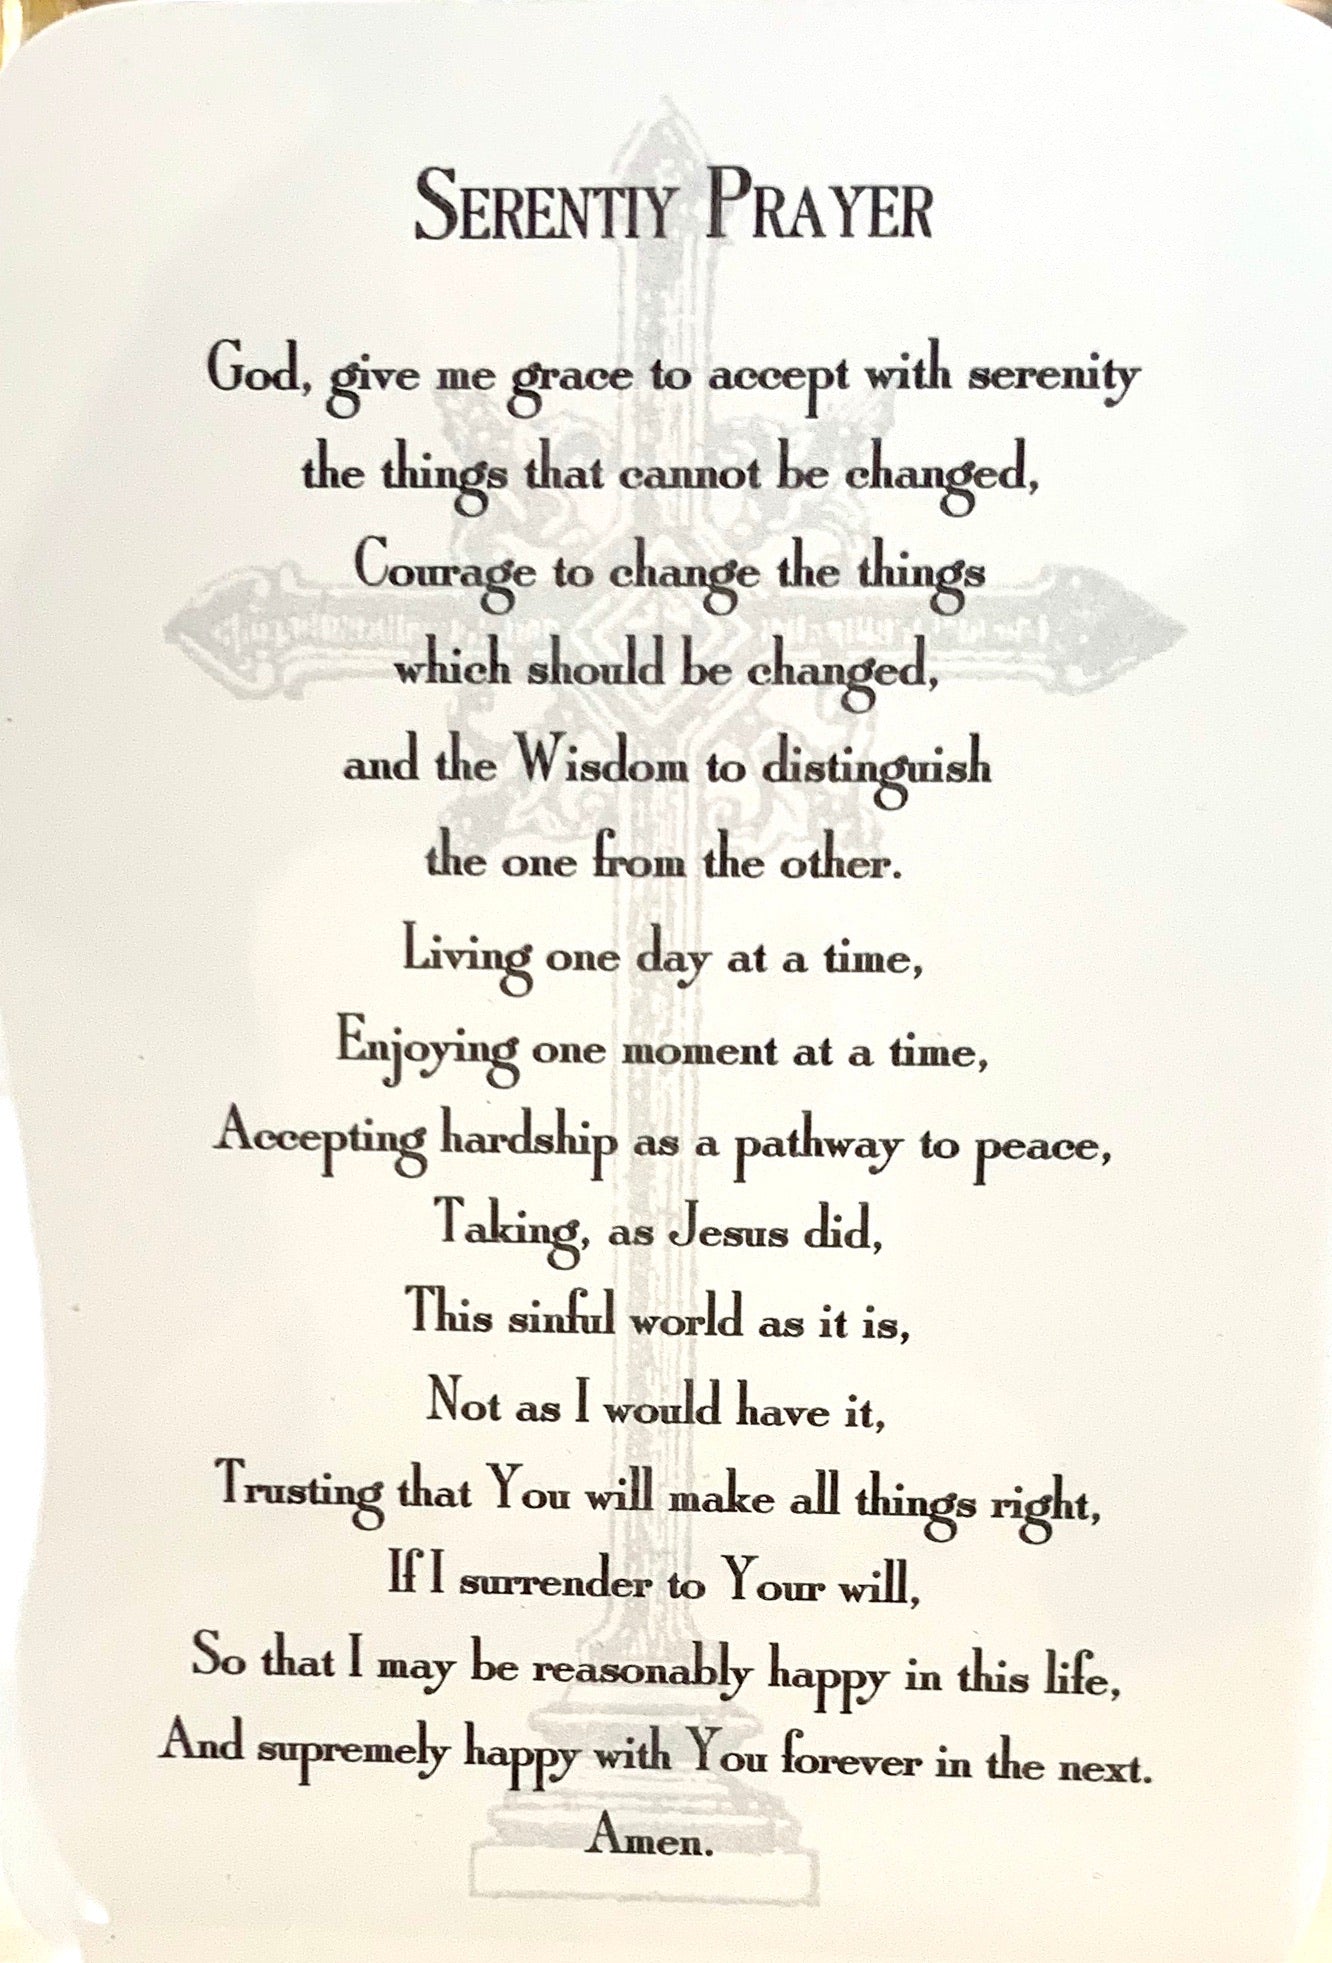 SERENTIY PRAYER
God, give me grace to accept with serenity
the things that cannot be changed,
Courage to change the things
which should be changed,
and the Wisdom to distinguish
the one from the other.
Living one day at a time,
Enjoying one moment at a time,
Accepting hardship as a pathway to peace,
Taking, as Jesus did,
This sinful world as it is,
Not as I would have it,
Trusting that You will make all things right,
If I surrender to Your will,
So that I may be reasonably happy in this life,
And supremely happy with You forever in the next.
Amen.